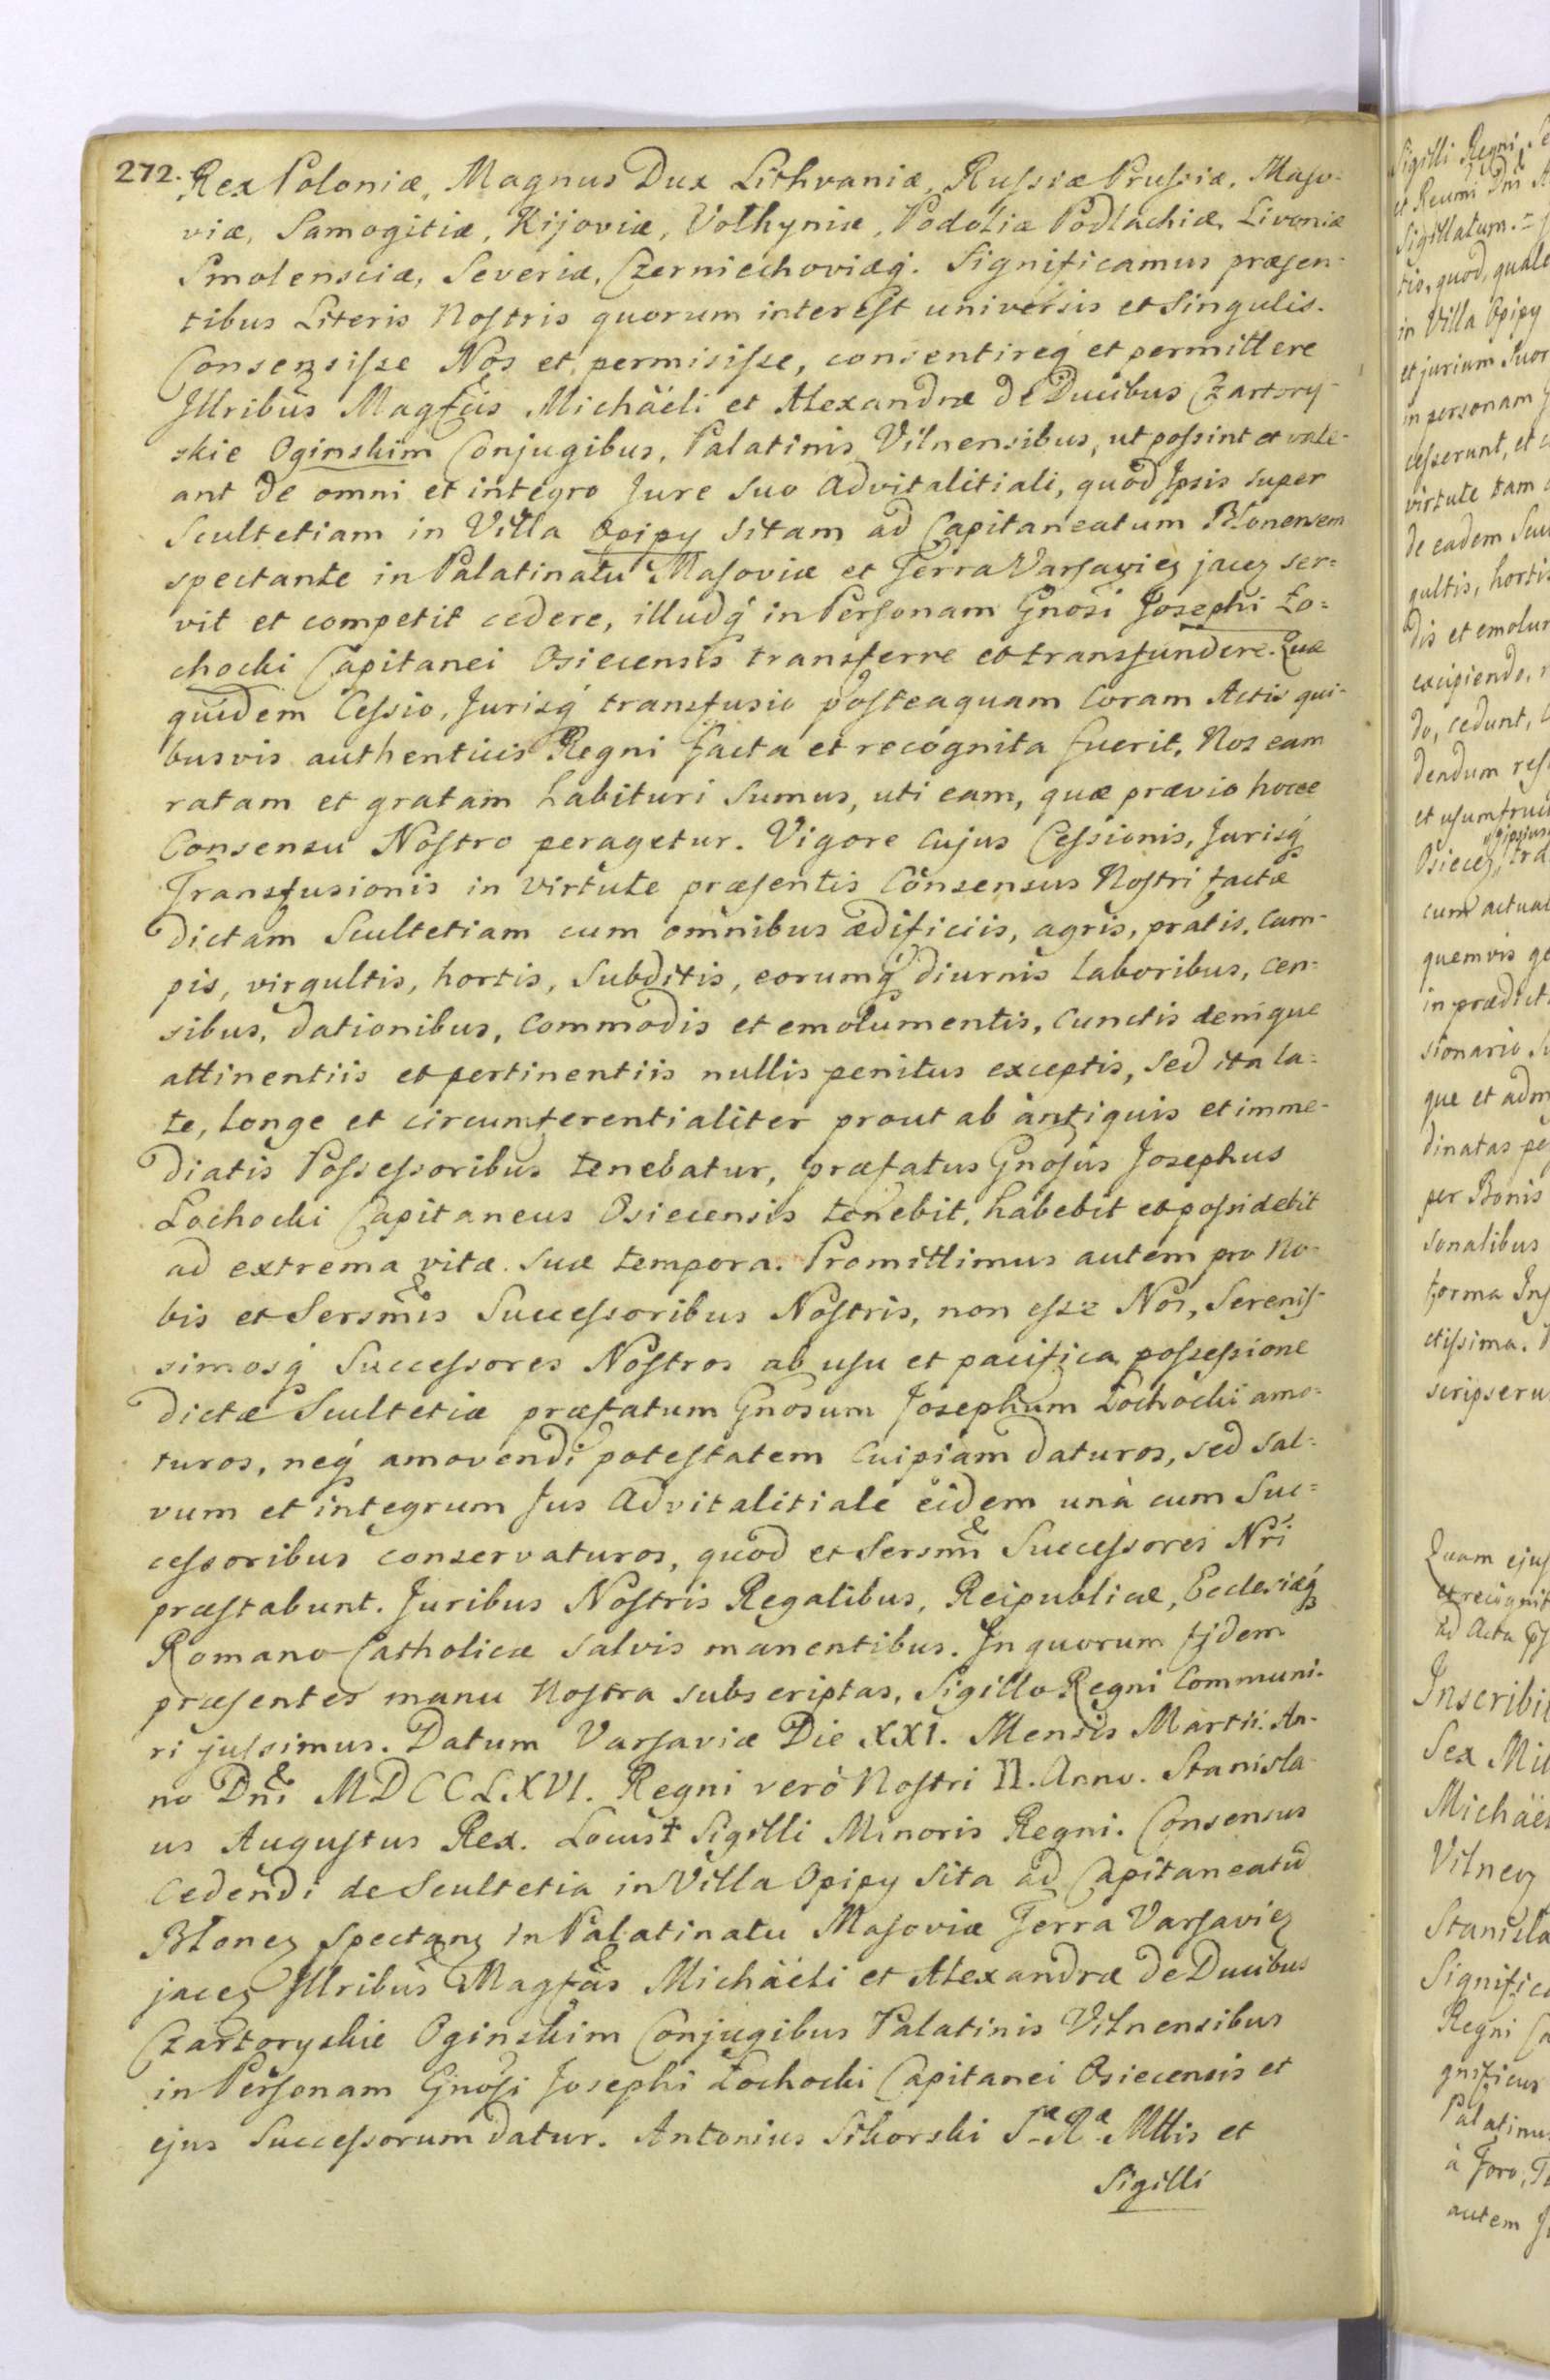 272. Rex Poloniæ, Magnus Dux Lithvaniæ, Russiæ Prussiæ, Maso-
viæ, Samogitiæ, Kijoviæ, Volhyniæ, Podoliæ Podlachiæ, Livoniæ
Smolensciæ, Severiæ, Czerniechoviæq́. Significamus præsen-
tibus Literis Nostris quorum interest universis et Singulis.
Consensisse Nos et permisisse, consentireq́ et permittere
Jllribus Magfcis Michäeli et Alexandræ de Ducibus Czartory-
skie Oginskim Conjugibus, Palatinis Vilnensibus, ut possint et vale-
ant de omni et integro Jure suo Advitalitiali, quod Jpsis super
Scultetiam in Villa Opipy sitam ad Capitaneatum Blonensem
spectante in Palatinatu Masoviæ et Terra Varsavieꝫ jaceꝫ ser=
vit et competit cedere, illudq́ in Personam Gnosi Josephi Ło=
chocki Capitanei Osiecensis transferre et transfundere. Quæ
quidem Cessio, Jurisq́ transfusio posteaquam Coram Actis qui-
busvis authenticis Regni facta et recognita fuerit, Nos eam
ratam et gratam habituri sumus, uti eam, quæ prævio hocce
Consensu Nostro peragetur. Vigore cujus Cessionis, Jurisq́
Transfusionis in virtute præsentis Consensus Nostri factæ
dictam Scultetiam cum omnibus ædificiis, agris, pratis, Cam-
pis, virgultis, hortis, Subditis, eorumq́ diurnis laboribus, cen-
sibus, dationibus, Commodis et emolumentis, cunctis denique
attinentiis et pertinentiis nullis penitus exceptis, sed ita la=
te, longe et circumferentialiter prout ab antiquis et imme-
diatis Possessoribus tenebatur, præfatus Gnosus Josephus
Łochocki Capitaneus Osiecensis tenebit, habebit et possidebit
ad extrema vitæ suæ tempora. Promittimus autem pro No-
bis et Sersmis Successoribus Nostris, non esse Nos, Serenis-
simosq́ Successores Nostros ab usu et pacifica possessione
dictæ Scultetiæ præfatum Gnosum Josephum Łochocki amo=
turos, neq́ amovendi potestatem cuipiam daturos, sed sal=
vum et integrum Jus Advitalitiale eidem unà cum Suc=
cessoribus conservaturos, quod et Sersmi Successores Nri
præstabunt. Juribus Nostris Regalibus, Reipublicæ, Ecclesiæq́
Romano Catholicæ salvis manentibus. Jn quorum fidem
præsentes manu Nostra subscriptas, Sigillo Regni Communi-
ri jussimus. Datum Varsaviæ Die XXI. Mensis Martii. An-
no Dni MDCCLXVI. Regni verò Nostri II. Anno. Stanisla-
us Augustus Rex. Locus + Sigilli Minoris Regni. Consensus
Cedendi de Scultetia in Villa Opipy sita ad Capitaneatu̅
Bloneꝫ Spectanꝫ in Palatinatu Masoviæ Terra Varsavieꝫ
jaceꝫ Jllribus Magfcis Michäeli et Alexandræ de Ducibus
Czartoryskie Oginskim Conjugibus Palatinis Vilnensibus
in Personam Gnosi Josephi Łochocki Capitanei Osiecensis et
ejus Successorum datur. Antonius Sikorski Sæ Ræ Mttis et
Sigilli
Sigilli Regni
et Reumi Dni
Sigillatum.
tio, quod, quale
in Villa Opipy
et jurium suor
in personam
cesserunt, et
virtute tam
de eadem Scu
gultis, hortis
dis et emolum
excipiendo,
do, cedunt,
dendum res
et usumfruc
Osieceꝫ, tra
cum actual
quemvis ge
in prædict
sionario su
que et adm
dinatas pe
per Bonis
sonalibus
forma Ins
ctissima.
scripseru
Quam ejus
et recognit
ad Acta
Inscribi
Sex Mil
Michäe
Vilneꝫ
Stanisla
Signific
Regni Ca
gnificus
Palatinus
à Foro, Te
autem